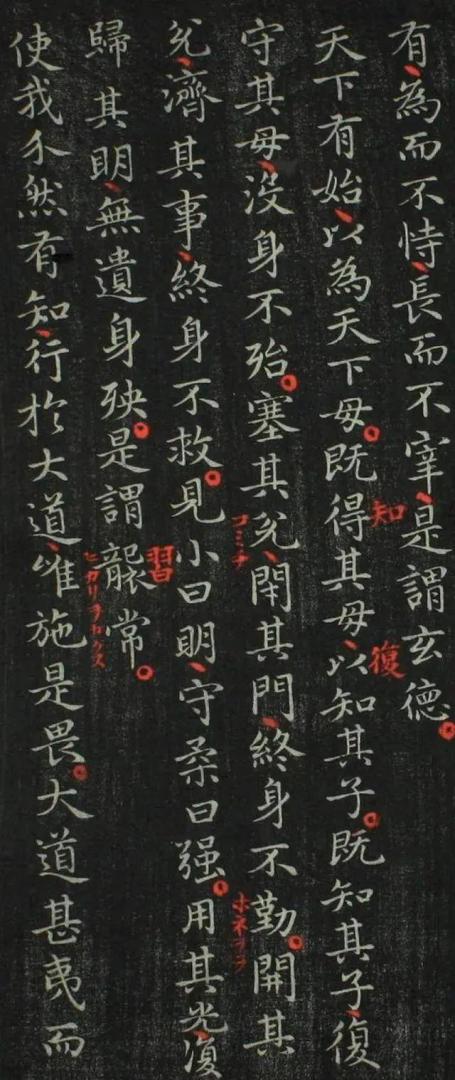 有為而不恃長而不宰是謂玄德
天下有始以為天下母既得其母以知其子既知其子復
守其母沒身不殆塞其兌閉其門終身不勤開其
兌濟其事終身不救見小曰明守柔曰强用其光復
歸其明無遺身殃是謂襲常
使我介然有知行於大道唯施是畏大道甚夷而
知
復
コミチ
習
ホネヲラ
ヒカリヲカクス